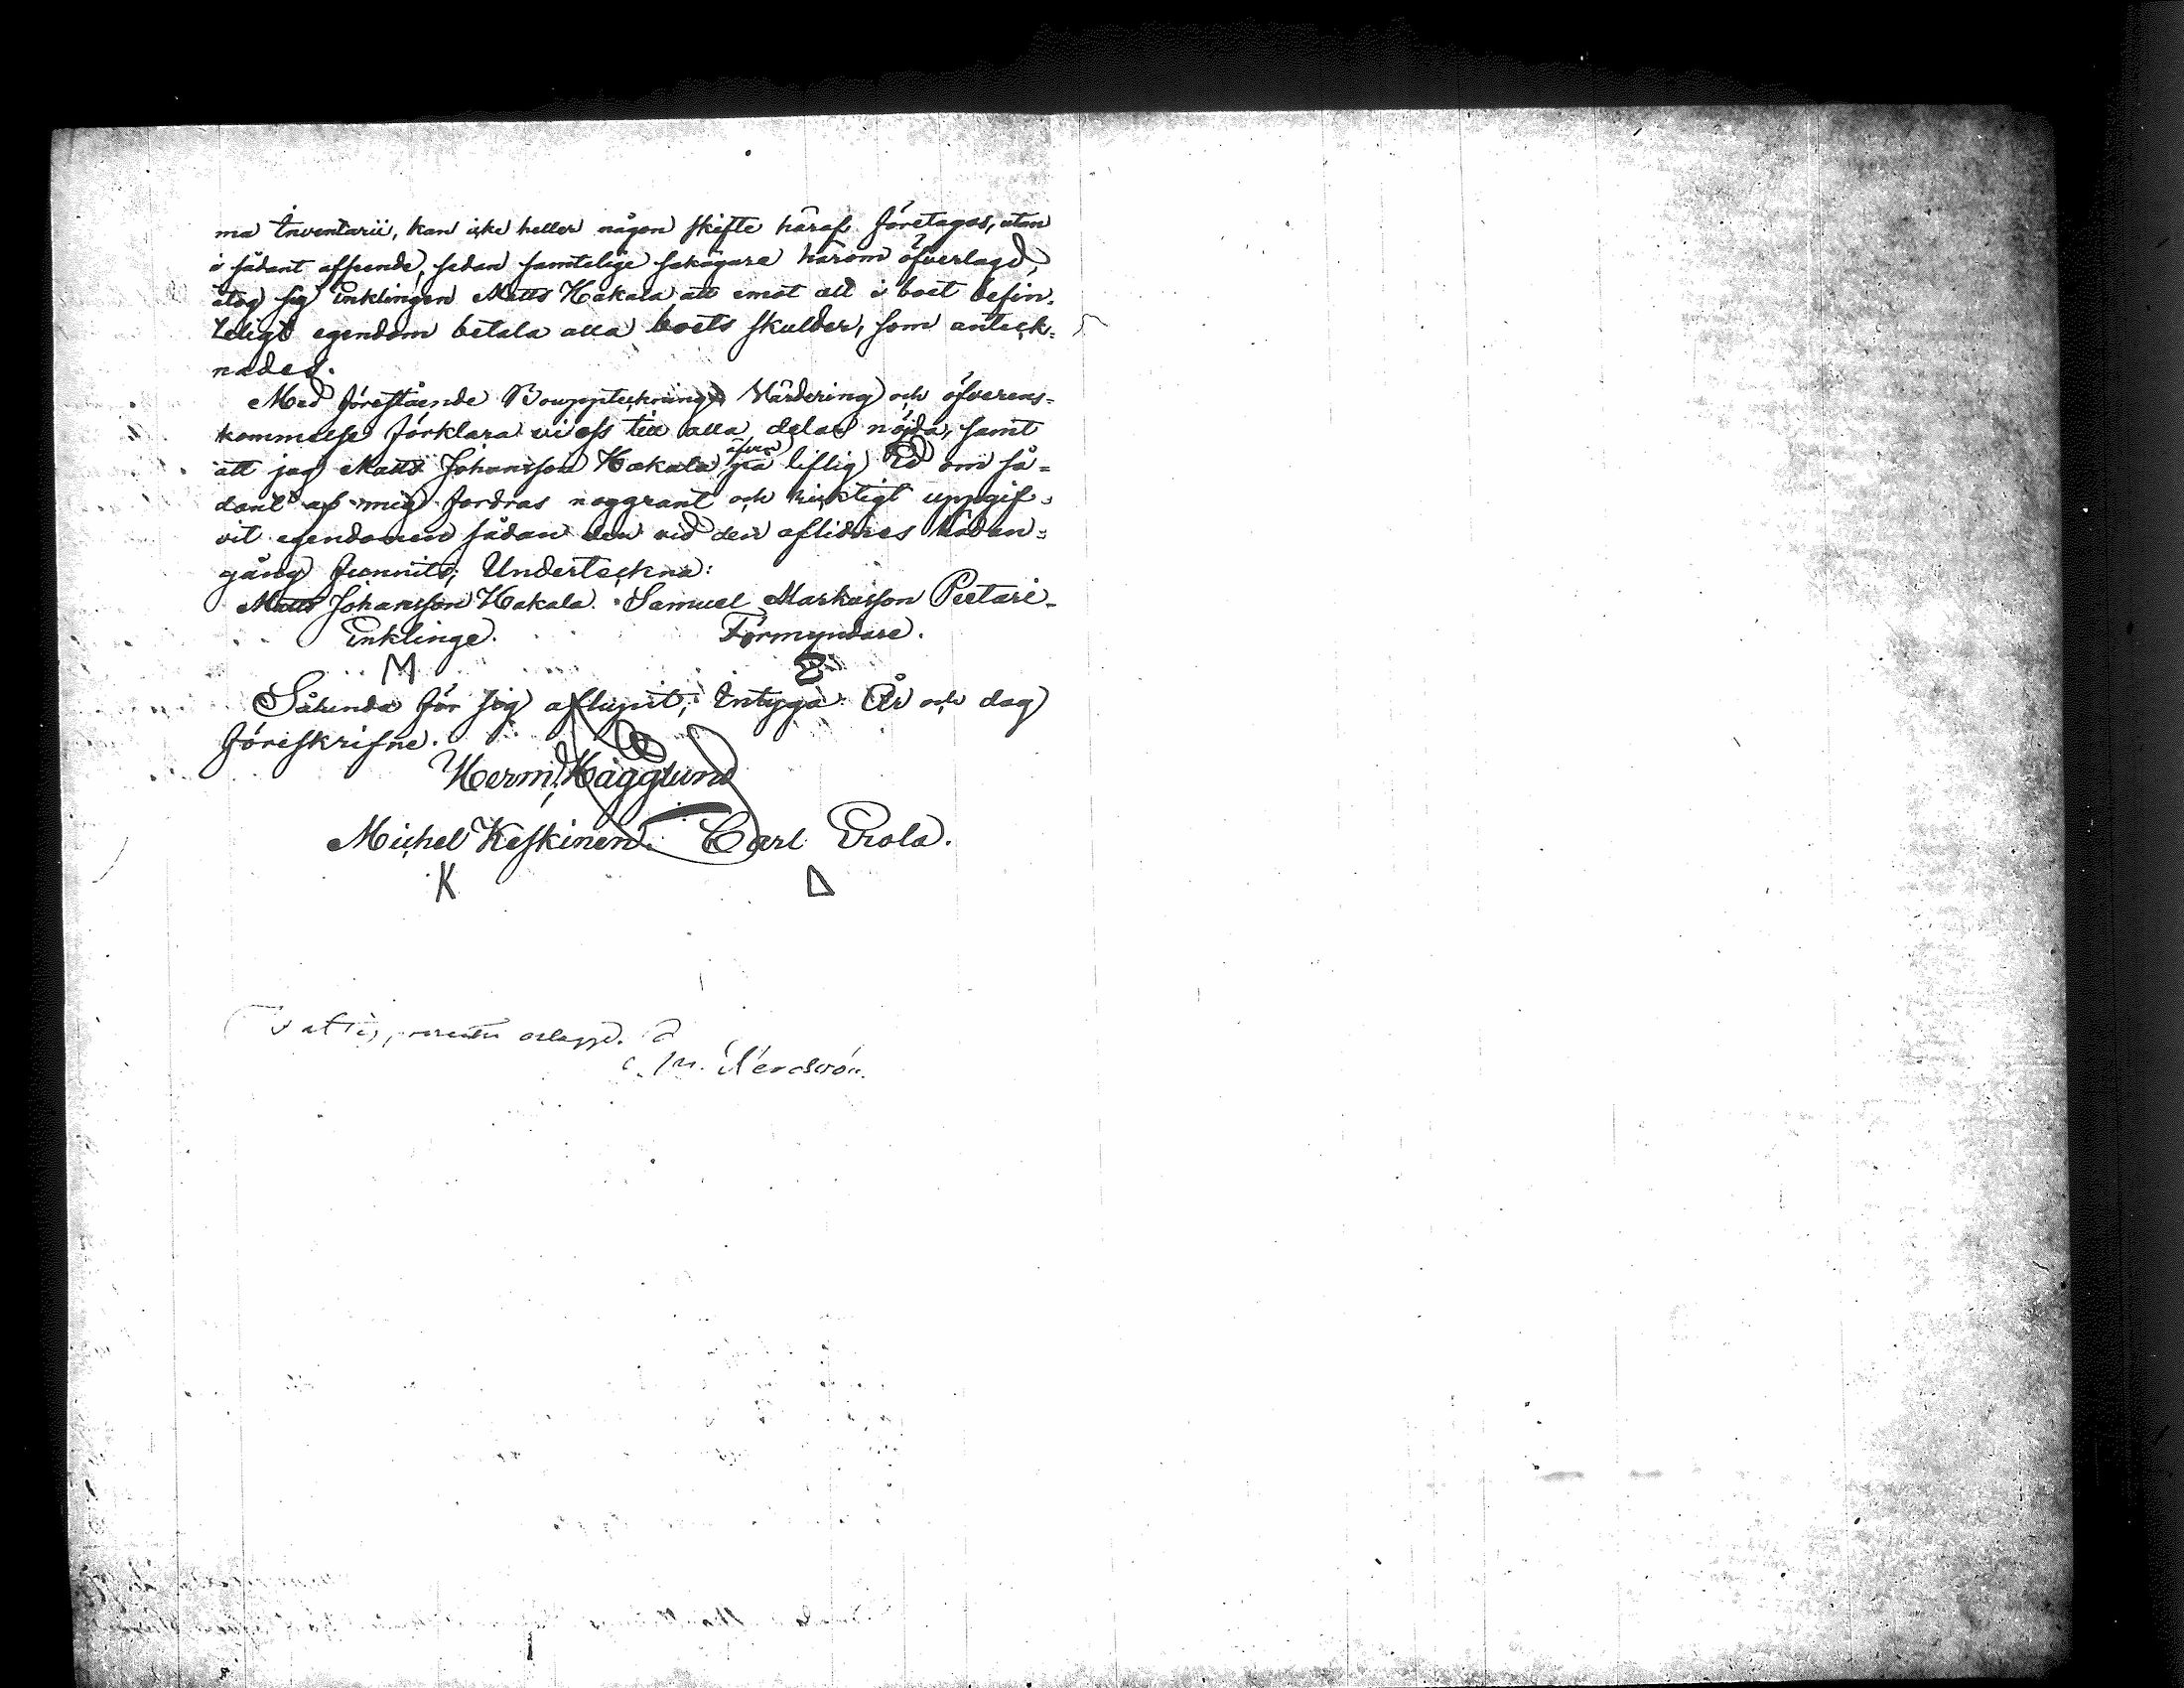 ma Inventarii, kan icke heller någon skifte häraf företagas, utan
i sådant afseende, sedan samtelige sakägare härom öfverlagd,
åtog sig Enklingen Matts Hakala att emot all i boet befin-
teligt egendom betala alla boets skulder, som anteck-
nades.
Med förestående Bouppteckning, Värdering och öfverens-
kommelse förklara vi oss till alla delar nöjda, samt
att jag Matts Johansson Hakala under liflig Ed om så-
dant af mig fordras noggrant och ricktigt uppgif-
vit egendomen sådan den vid den aflidnes hädan-
gång funnits; Underteckna:
Matts Johansson Hakala. Samuel Markusson Peetari
Enklinge. Förmyndare.
M
Sålunda för sig aflupit, Intyga År och dag
föreskrifne.
Herm. Hägglund
Michel Keskinen. Carl Erola.
K